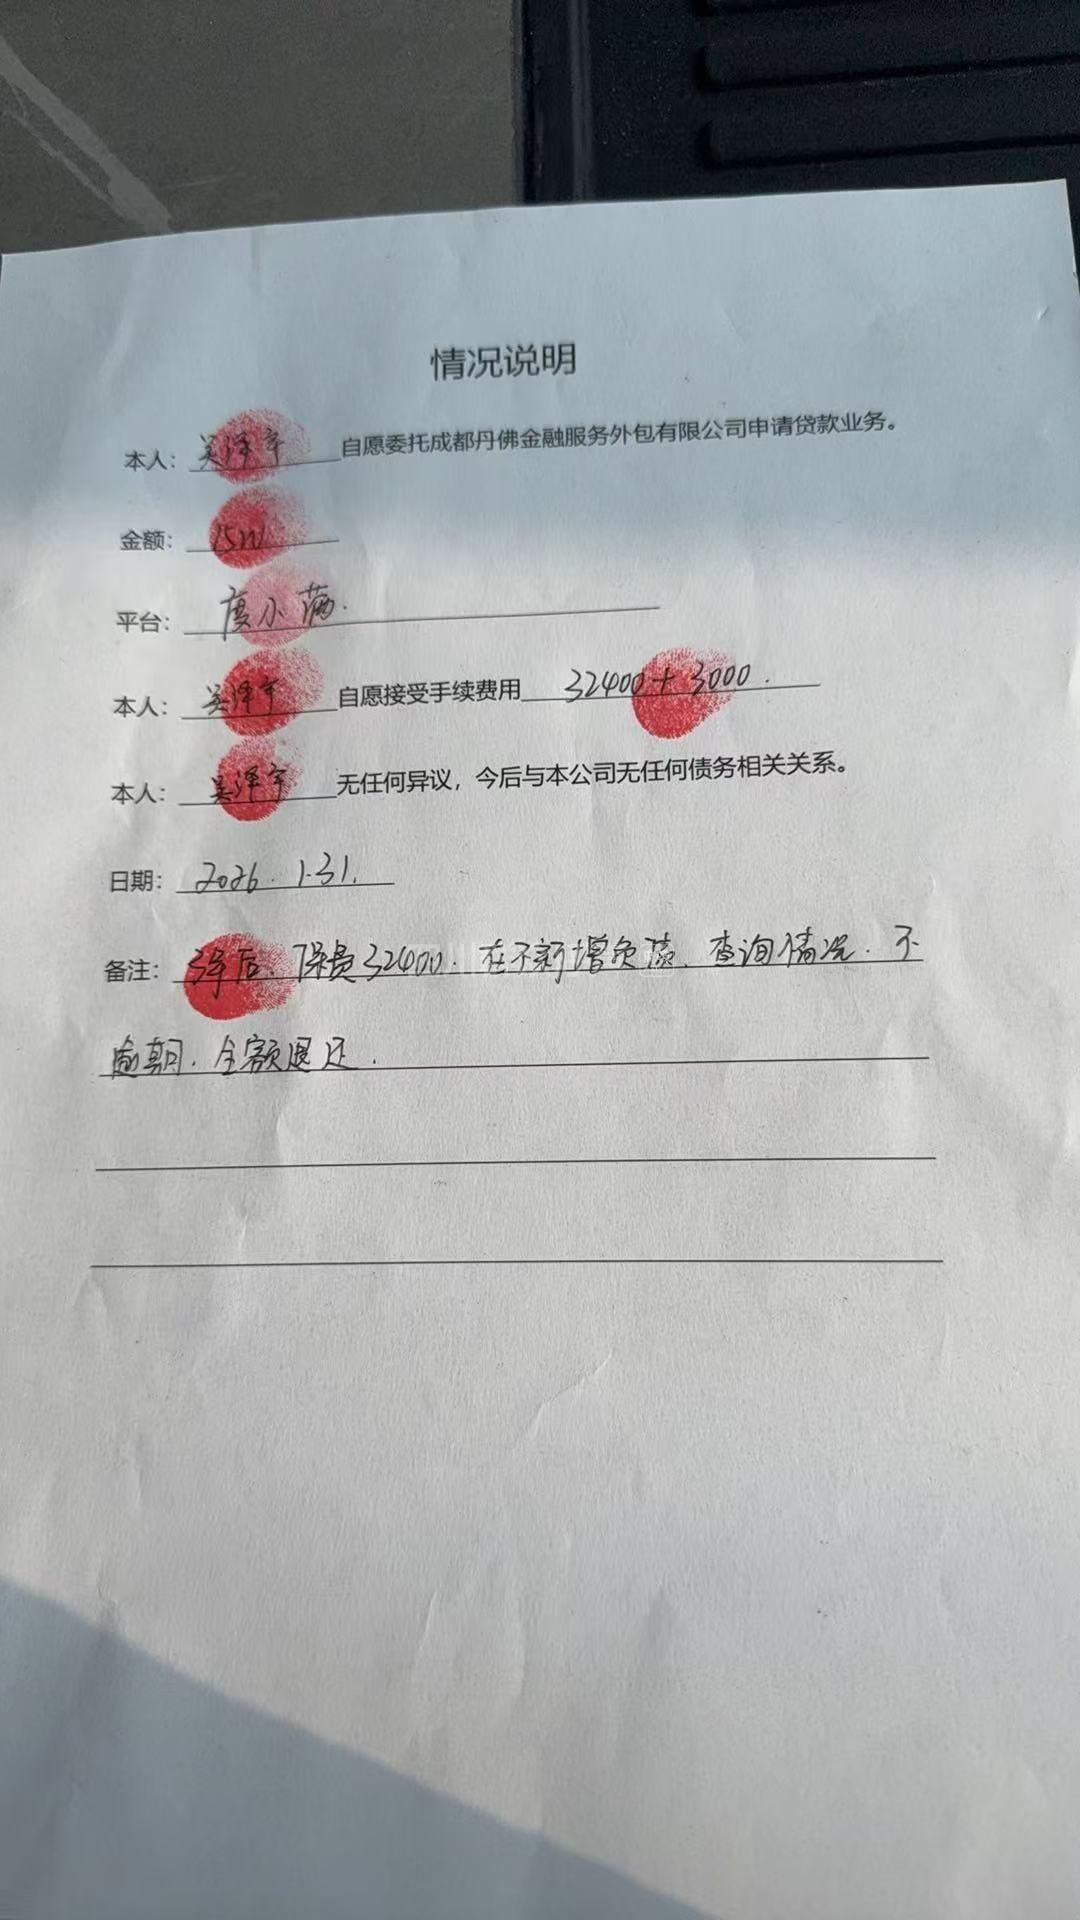 情况说明
本人：吴泽宇自愿委托成都丹佛金融服务外包有限公司申请贷款业务。
金额：15W
平台：度小满.
本人：吴泽宇自愿接受手续费用 32400+3000.
本人：吴泽宇无任何异议，今后与本公司无任何债务相关关系。
日期：2026.1.31.
备注：3年后.保费32400.在不新增负债、查询情况.不
逾期.全额退还.